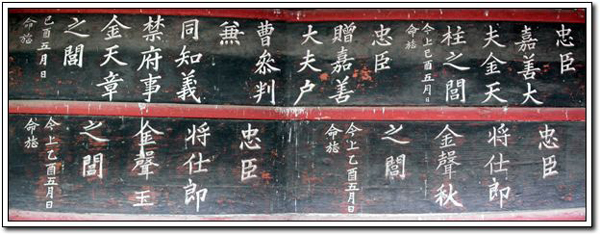 忠臣
嘉善大
夫金天
柱之閭
今上己酉五月日
命旌
忠臣
贈嘉善
大夫户
曹叅判
兼
同知義
禁府事
金天章
之閭
己酉五月日
命旌
忠臣
将仕郎
金聲秋
之閭
今上乙酉五月日
命旌
忠臣
将仕郎
金聲玉
之閭
今上乙酉五月日
命旌